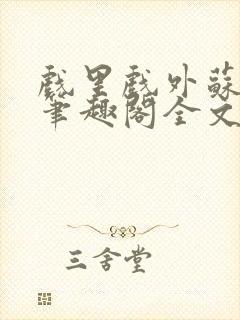 戲里戲外蘇
筆趣閣全文
三舍堂